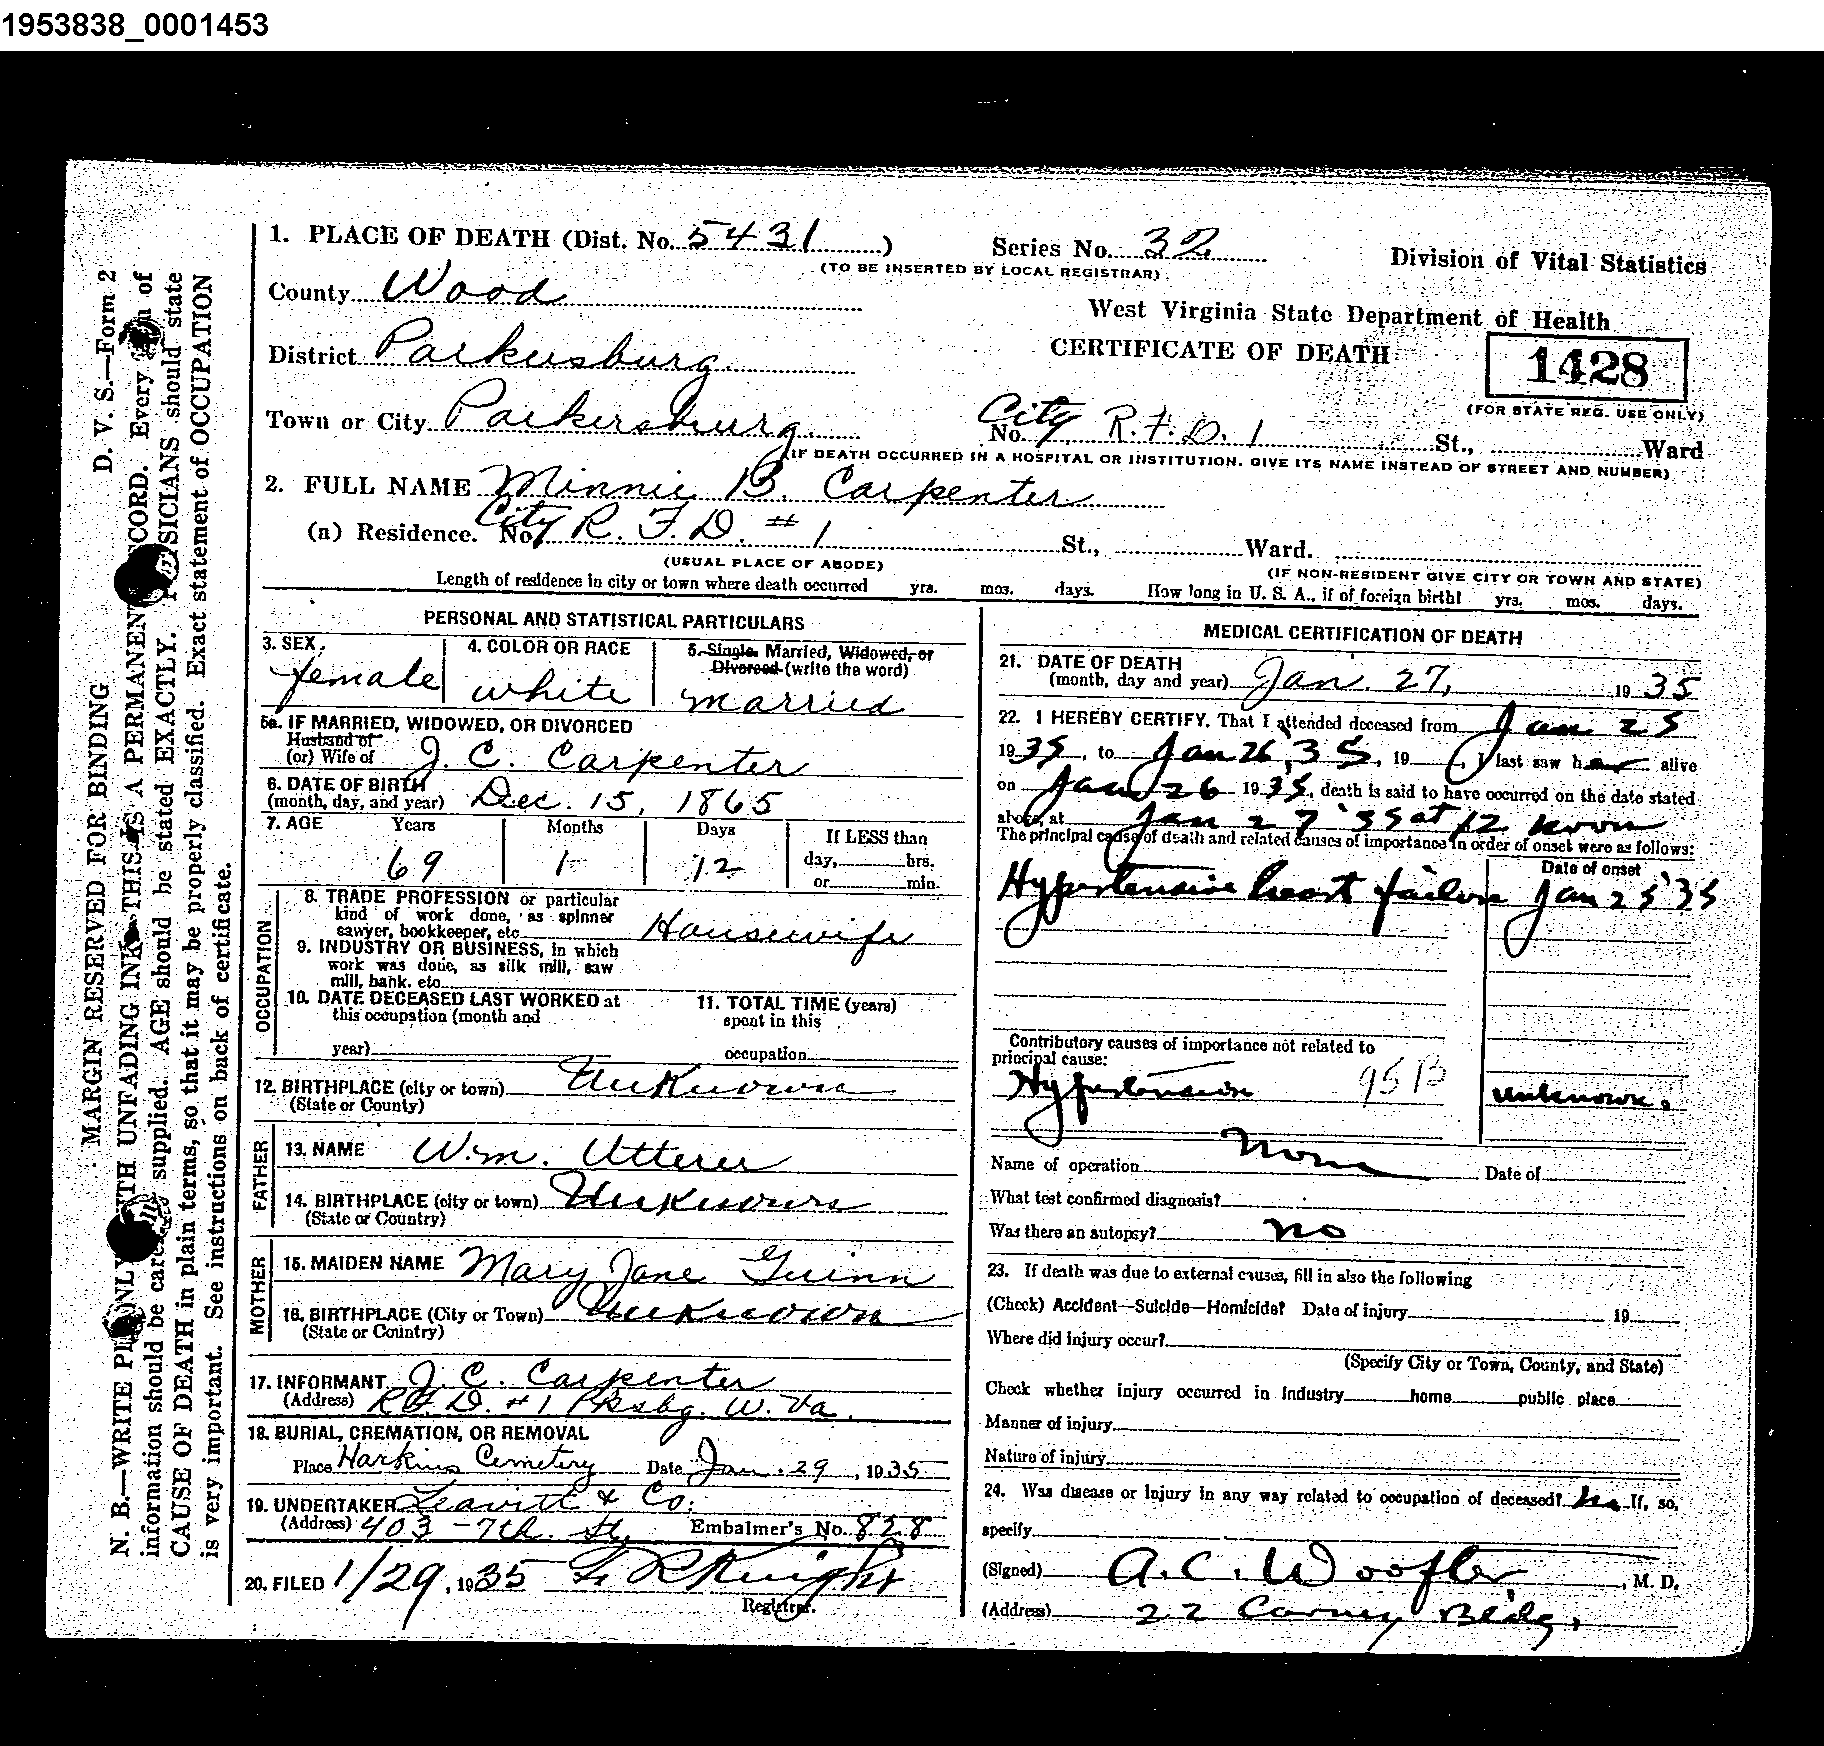 1953838_0001453
1. PLACE OF DEATH (Dist. No. 5431 ) Series No. 32
(TO BE INSERTED BY LOCAL REGISTRAR)
Division of Vital Statistics
County Wood
West Virginia State Department of Health
District Parkersburg
CERTIFICATE OF DEATH
1428
(FOR STATE REG. USE ONLY)
Town or City Parkersburg No. City R.F.D. 1 St., Ward
(IF DEATH OCCURRED IN A HOSPITAL OR INSTITUTION, GIVE ITS NAME INSTEAD OF STREET AND NUMBER)
2. FULL NAME Minnie B. Carpenter
(a) Residence. No. City R. F. D. # 1 St., Ward.
(USUAL PLACE OF ABODE) (IF NON-RESIDENT GIVE CITY OR TOWN AND STATE)
Length of residence in city or town where death occurred yrs. mos. days. How long in U. S. A., if of foreign birth? yrs. mos. days.
PERSONAL AND STATISTICAL PARTICULARS
3. SEX 4. COLOR OR RACE 5. Single. Married, Widowed, or
Divorced (write the word)
female white married
5a. IF MARRIED, WIDOWED, OR DIVORCED
Husband of
(or) Wife of J. C. Carpenter
6. DATE OF BIRTH
(month, day, and year) Dec. 15, 1865
7. AGE Years Months Days If LESS than
69 1 12 day, hrs.
or min.
OCCUPATION
8. TRADE PROFESSION or particular
kind of work done, as spinner
sawyer, bookkeeper, etc. Housewife
9. INDUSTRY OR BUSINESS, in which
work was done, as silk mill, saw
mill, bank, etc.
10. DATE DECEASED LAST WORKED at
this occupation (month and
year)
11. TOTAL TIME (years)
spent in this
occupation
12. BIRTHPLACE (city or town) Unknown
(State or County)
FATHER
13. NAME Wm. Utterer
14. BIRTHPLACE (city or town) Unknown
(State or Country)
MOTHER
15. MAIDEN NAME Mary Jane Guinn
16. BIRTHPLACE (City or Town) Unknown
(State or Country)
17. INFORMANT J. C. Carpenter
(Address) R.F.D. #1 Pksbg. W. Va.
18. BURIAL, CREMATION, OR REMOVAL
Place Harkins Cemetery Date Jan. 29, 1935
19. UNDERTAKER Leavitt & Co.
(Address) 403 - 7th. St. Embalmer's No. 828
20. FILED 1/29, 1935 Knight
Registrar.
MEDICAL CERTIFICATION OF DEATH
21. DATE OF DEATH
(month, day and year) Jan. 27, 1935
22. I HEREBY CERTIFY, That I attended deceased from Jan 25
1935, to Jan 26, 35, 19 , I last saw her alive
on Jan 26 1935, death is said to have occurred on the date stated
above, at Jan 27 '35 at 12 noon
The principal cause of death and related causes of importance in order of onset were as follows:
Date of onset
Hypertensive heart failure Jan 25 '35
Contributory causes of importance not related to
principal cause:
Hypertension 95B unknown.
Name of operation None Date of
What test confirmed diagnosis?
Was there an autopsy? no
23. If death was due to external causes, fill in also the following
(Check) Accident—Suicide—Homicide? Date of injury 19
Where did injury occur?
(Specify City or Town, County, and State)
Check whether injury occurred in industry home public place
Manner of injury
Nature of injury
24. Was disease or injury in any way related to occupation of deceased? no If, so,
specify
(Signed) A. C. Woofter, M. D.
(Address) 22 Bldg.
D. V. S.—Form 2
MARGIN RESERVED FOR BINDING
N. B.—WRITE WITH UNFADING INK—THIS IS A PERMANENT RECORD. Every of
information should be supplied. AGE should be stated EXACTLY. PHYSICIANS should state
CAUSE OF DEATH in plain terms, so that it may be properly classified. Exact statement of OCCUPATION
is very important. See instructions on back of certificate.